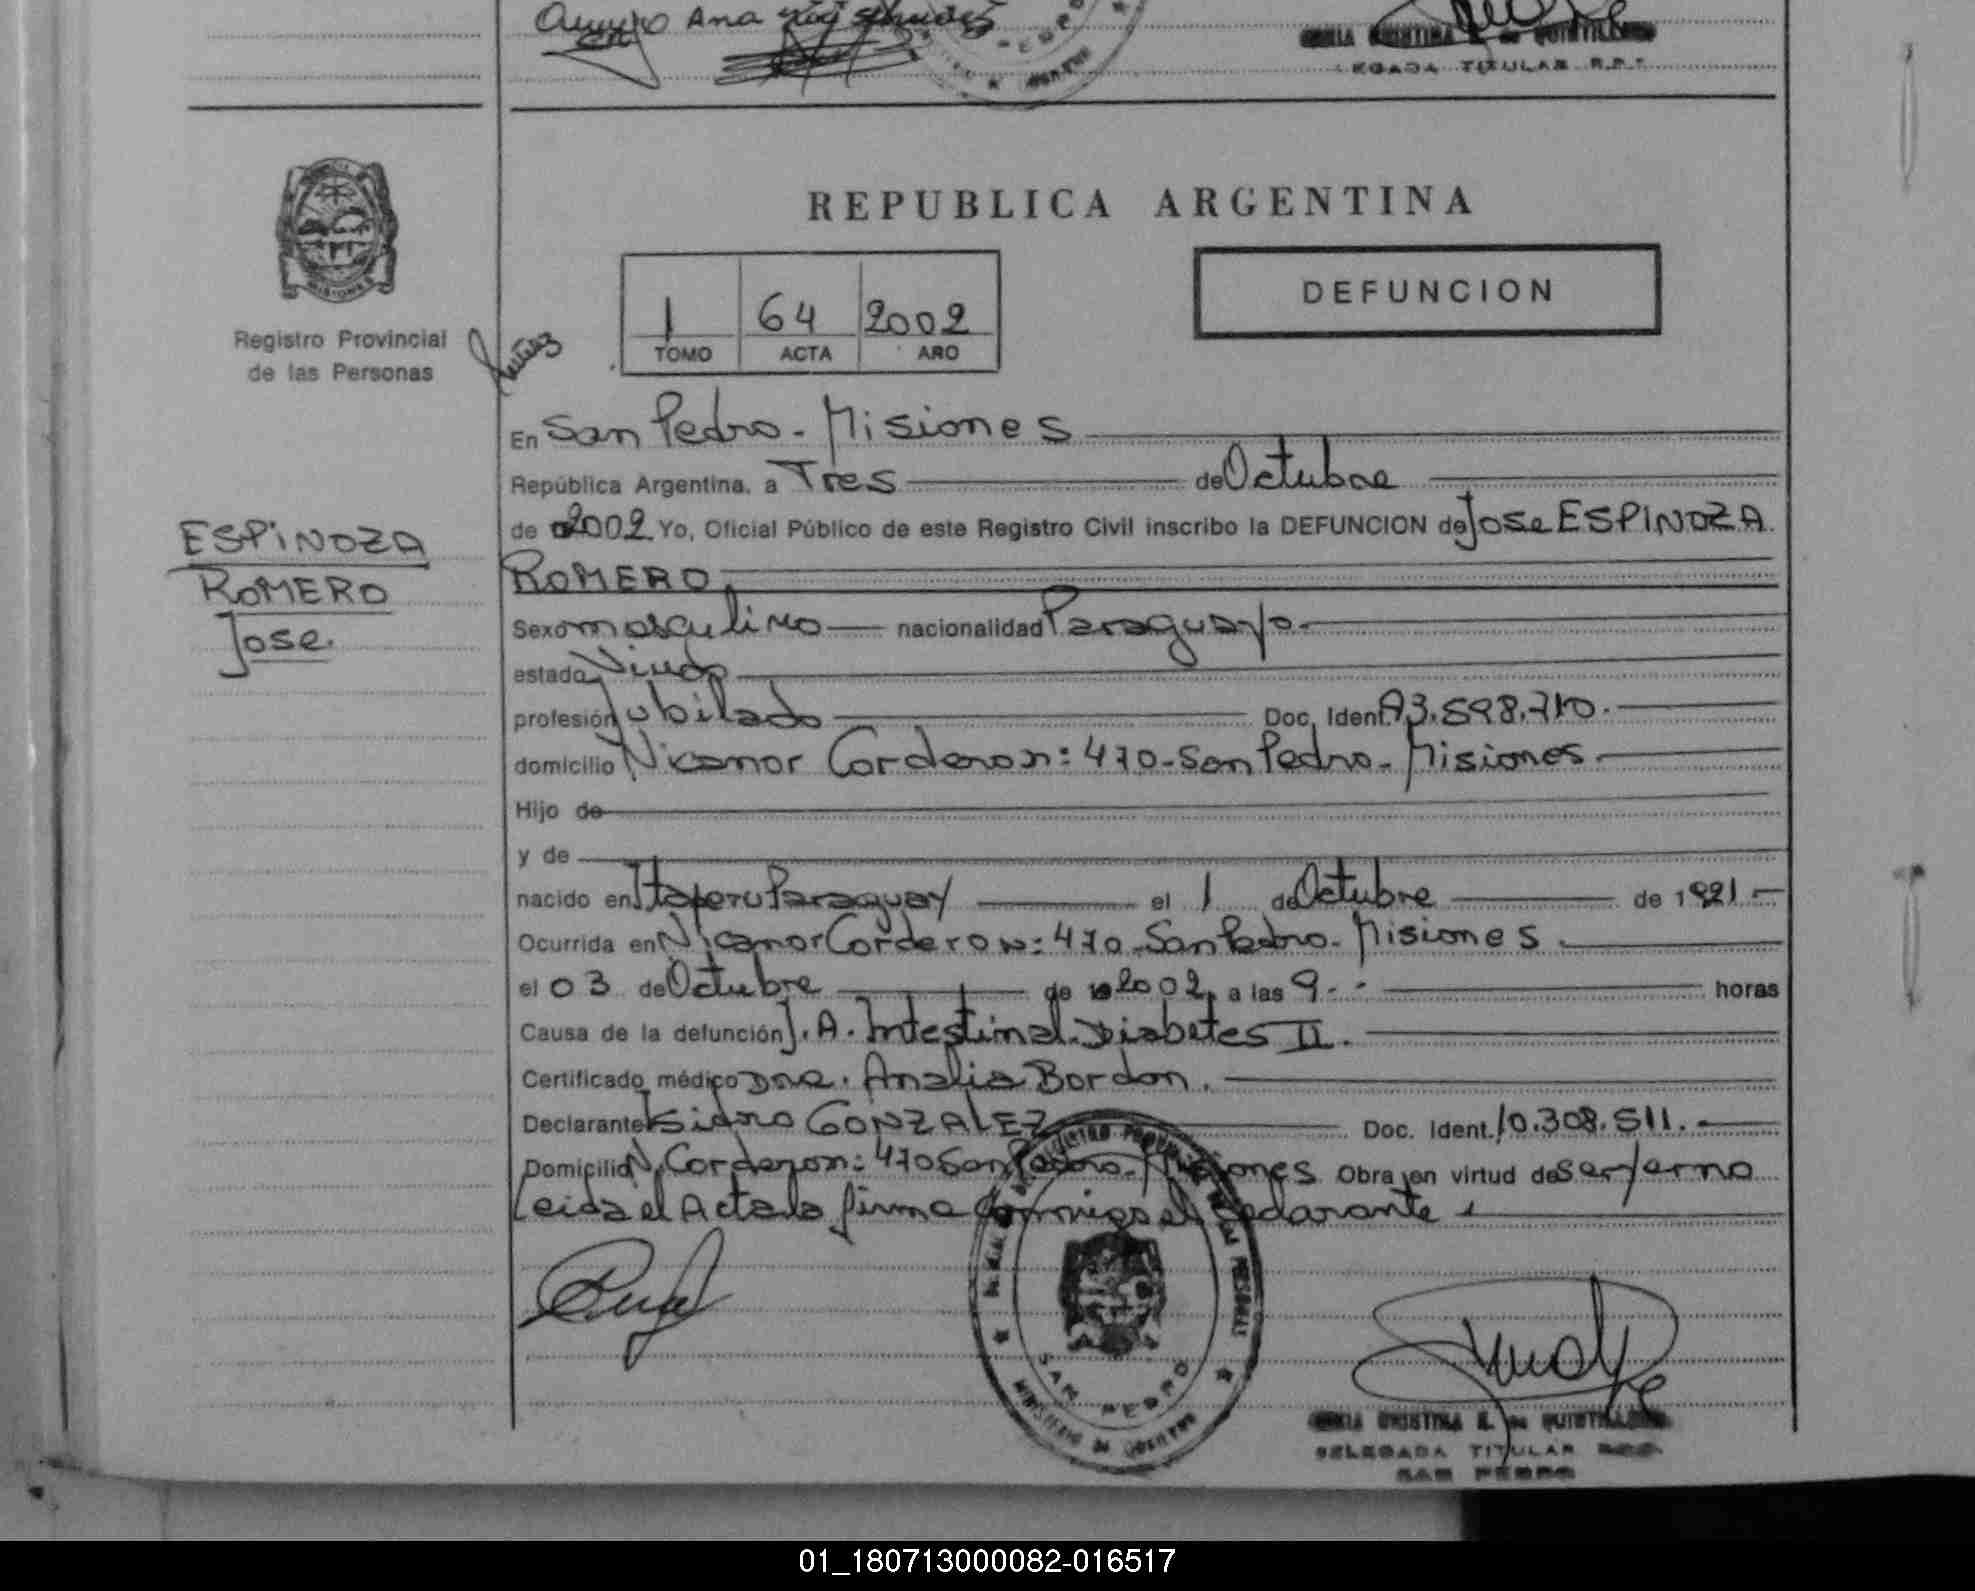 Ana
LEGADA TITULAR R.P.
REPUBLICA ARGENTINA
DEFUNCION
1 64 2002
TOMO ACTA AÑO
MISIONES
Registro Provincial
de las Personas
En San Pedro - Misiones
República Argentina, a Tres de Octubre
de 2002 Yo, Oficial Público de este Registro Civil inscribo la DEFUNCION de Jose ESPINOZA
ROMERO.
ESPINOZA
ROMERO
Jose.
Sexo masculino nacionalidad Paraguayo.
estado Viudo
profesión Jubilado Doc. Ident. 93.598.710.
domicilio Nicanor Cordero n: 470 - San Pedro - Misiones
Hijo de
y de
nacido en Itaperu Paraguay el 1 de Octubre de 1921 -
Ocurrida en Nicanor Cordero n: 470 - San Pedro - Misiones.
el 03 de Octubre de 2002, a las 9 - - horas
Causa de la defunción I. A. Intestinal - Diabetes II.
Certificado médico Dra. Analia Bordon.
Declarante Isidro GONZALEZ Doc. Ident. 10.308.511.
Domicilio N. Cordero n: 470 San Pedro - Misiones Obra en virtud de ser yerno
Leida el Acta la firma conmigo el declarante
SAN PEDRO
CRISTINA E. de QUINTILLAN
DELEGADA TITULAR
SAN PEDRO
01_180713000082-016517